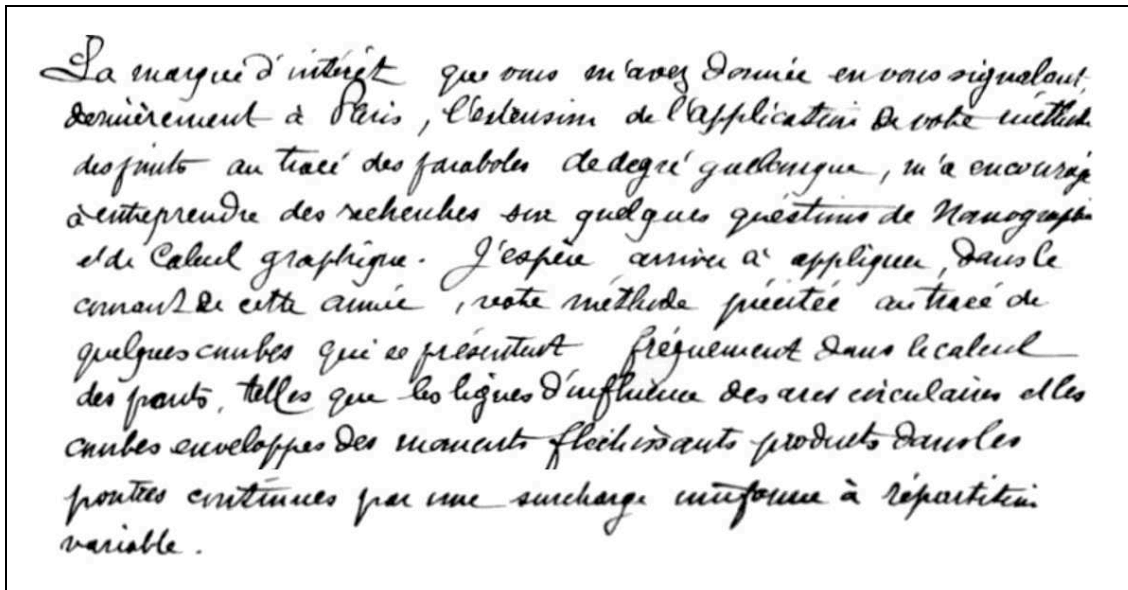 La marque d'intérêt que vous m'avez donnée en vous signalant,
dernièrement à Paris, l'extension de l'application de votre méthode
des points au tracé des paraboles de degré quelconque, m'a encouragé
à entreprendre des recherches sur quelques questions de Nomographie
et de Calcul graphique. J'espère arriver à appliquer, dans le
courant de cette année, votre méthode précitée au tracé de
quelques courbes qui se présentent fréquement dans le calcul
des ponts, telles que les lignes d'influence des arcs circulaires et les
courbes enveloppes des moments fléchissants produits dans les
poutres continues par une surcharge uniforme à répartition
variable.